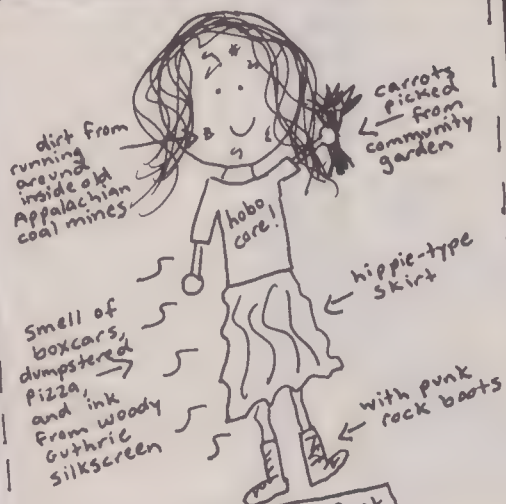 dirt from
running
around
inside old
Appalachian
coal mines
carrots
picked
from
community
garden
hobo
core!
hippie-type
skirt
smell of
boxcars,
dumpstered
pizza,
and ink
from woody
Guthrie
silkscreen
with punk
rock boots